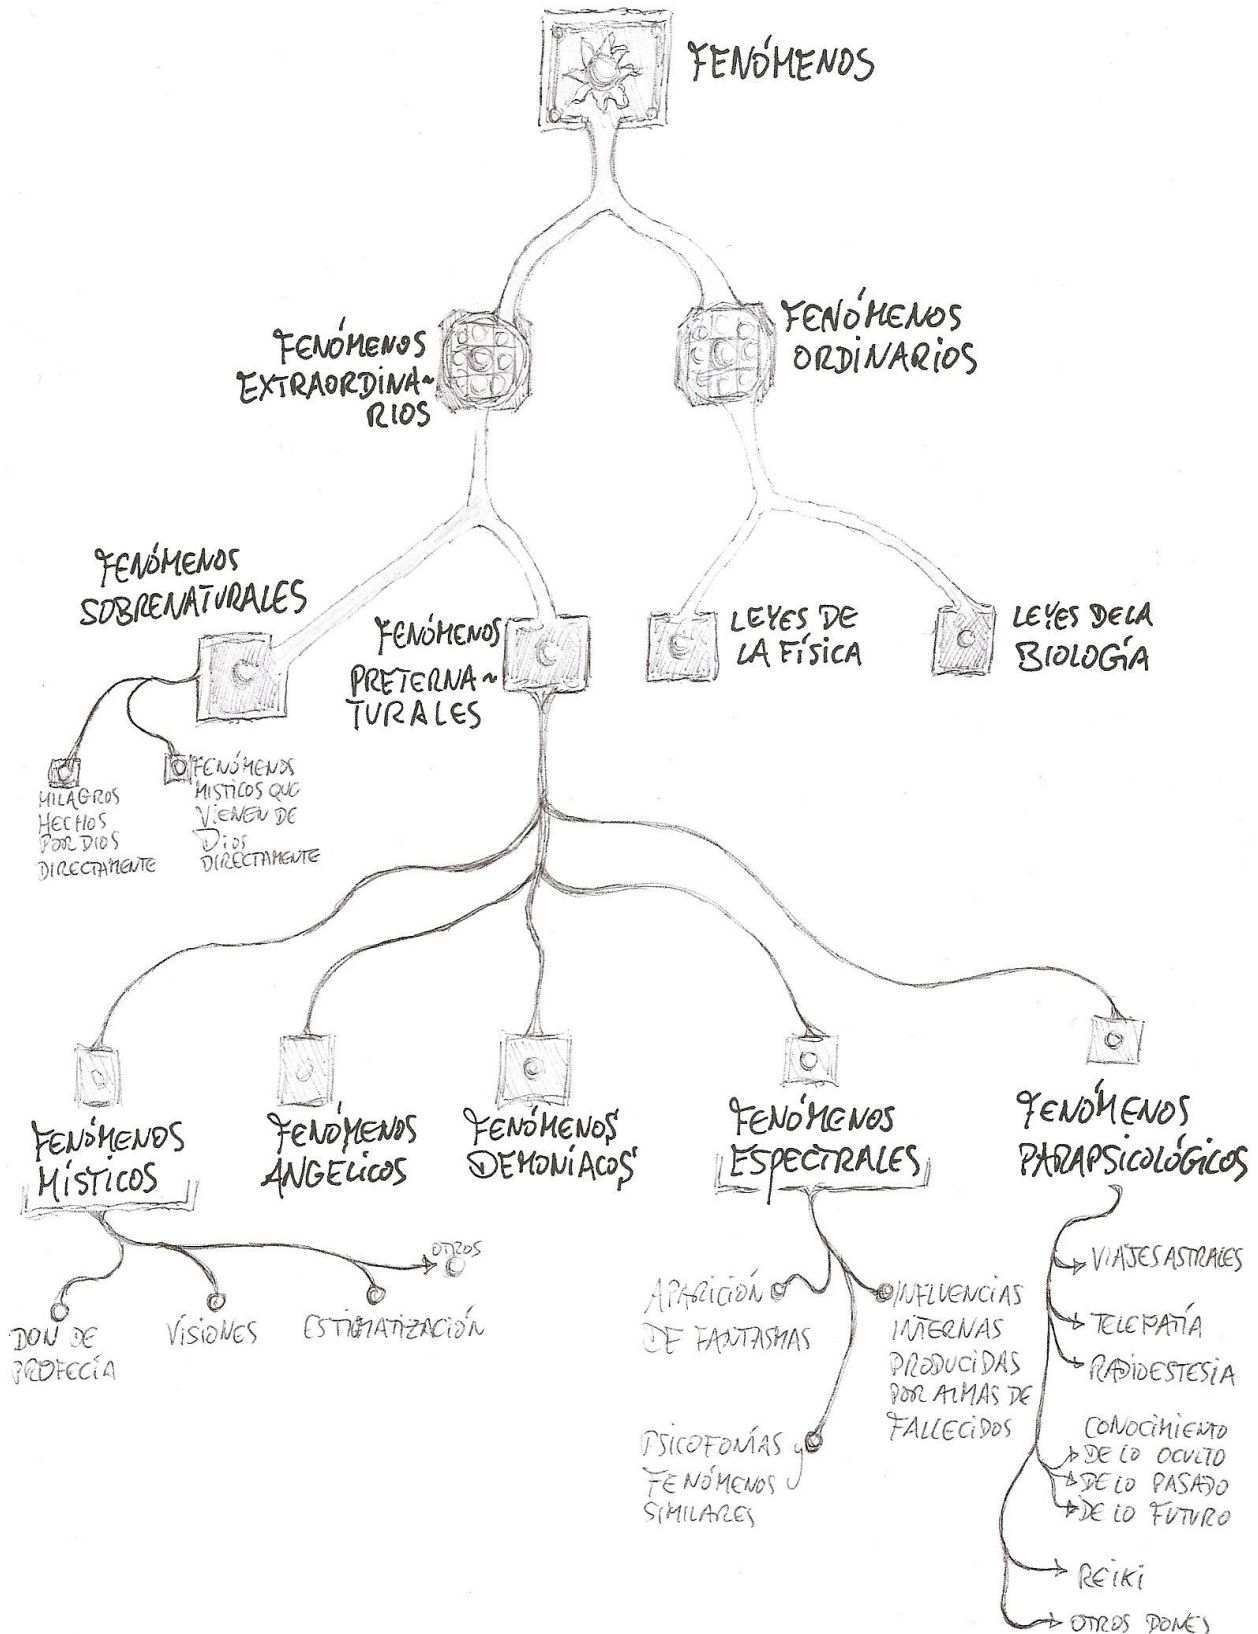 FENÓMENOS
FENÓMENOS
EXTRAORDINA~
RIOS
FENÓMENOS
ORDINARIOS
FENÓMENOS
SOBRENATURALES
FENÓMENOS
PRETERNA~
TURALES
LEYES DE
LA FÍSICA
LEYES DE LA
BIOLOGÍA
MILAGROS
HECHOS
POR DIOS
DIRECTAMENTE
FENÓMENOS
MISTICOS QUE
VIENEN DE
DIOS
DIRECTAMENTE
FENÓMENOS
MÍSTICOS
FENÓMENOS
ANGÉLICOS
FENÓMENOS
DEMONÍACOS
FENÓMENOS
ESPECTRALES
FENÓMENOS
PARAPSICOLÓGICOS
DON DE
PROFECÍA
VISIONES
ESTIGMATIZACIÓN
OTROS
APARICIÓN
DE FANTASMAS
PSICOFONÍAS y
FENÓMENOS
SIMILARES
INFLUENCIAS
INTERNAS
PRODUCIDAS
POR ALMAS DE
FALLECIDOS
VIAJES ASTRALES
TELEPATÍA
RADIOESTESIA
CONOCIMIENTO
DE LO OCULTO
DE LO PASADO
DE LO FUTURO
REIKI
OTROS DONES